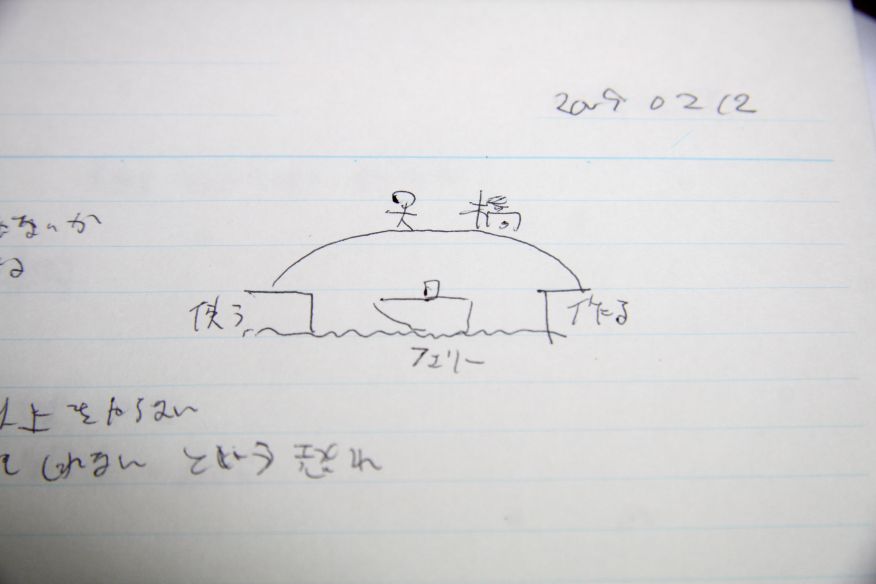 2009 02 12
ないか
る
橋
使う
作る
フェリー
以上をやらない
しれないという恐れ